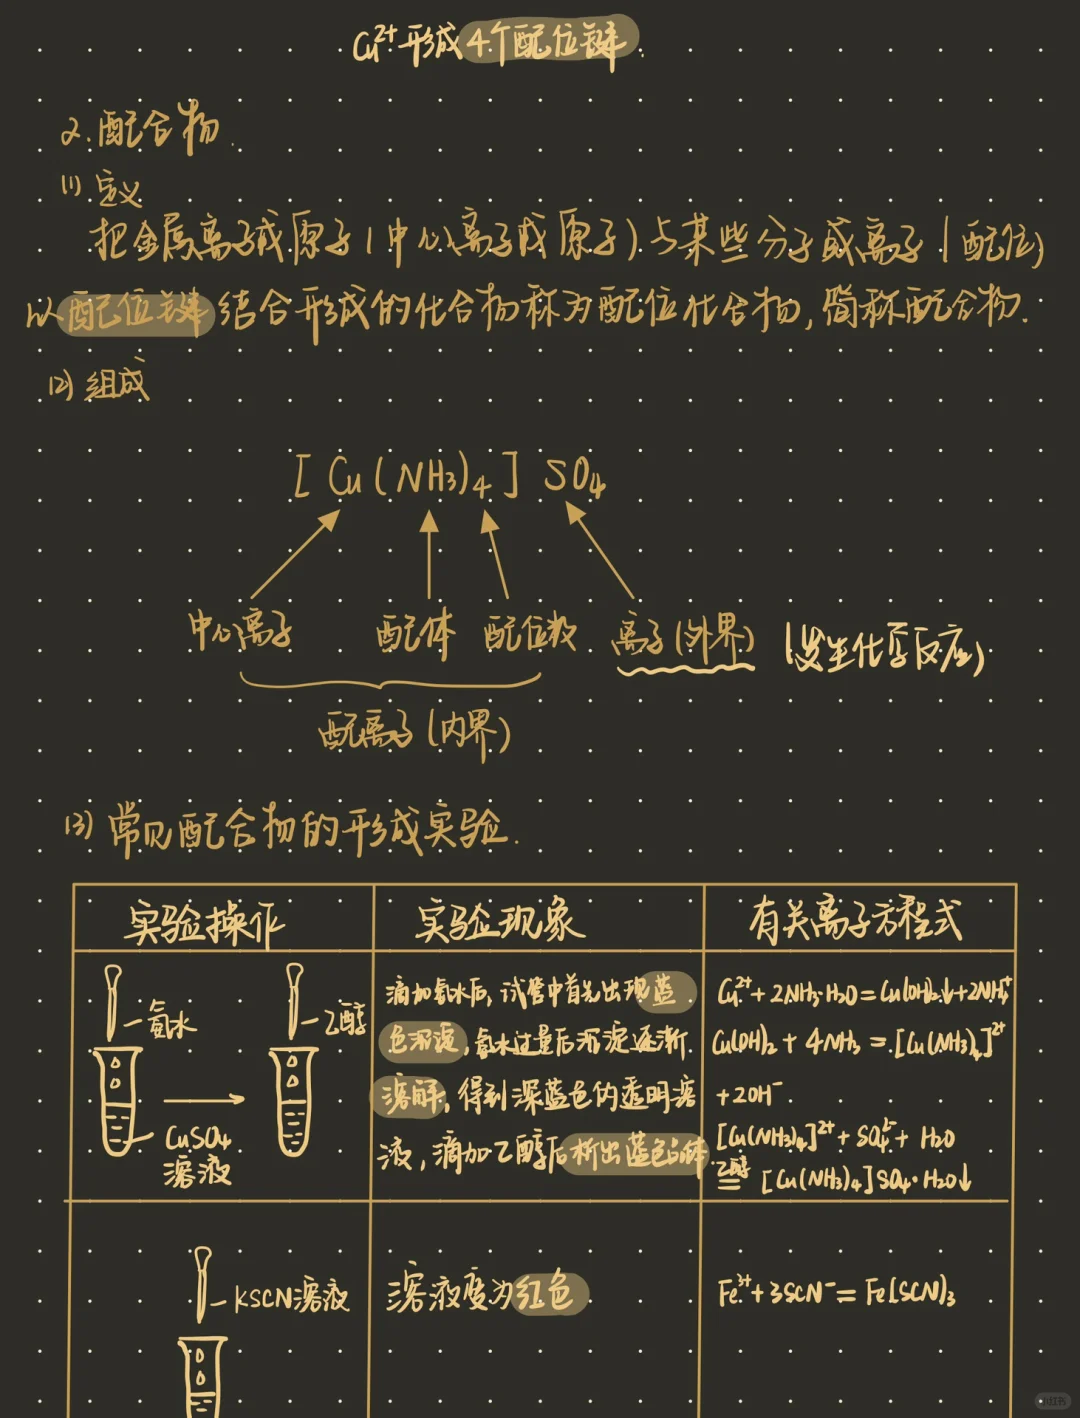 Cu²⁺形成4个配位键.
2.配合物.
(1) 定义
把金属离子或原子(中心离子或原子)与某些分子或离子(配位)
以配位键结合形成的化合物称为配位化合物,简称配合物.
(2) 组成
[Cu(NH₃)₄]SO₄
中心离子 配体 配位数 离子(外界) (发生化学反应)
配离子(内界)
(3) 常见配合物的形成实验.
实验操作 实验现象 有关离子方程式
氨水
乙醇
CuSO₄
溶液
滴加氨水后,试管中首先出现蓝
色沉淀,氨水过量后沉淀逐渐
溶解,得到深蓝色的透明溶
液,滴加乙醇后析出蓝色晶体
Cu²⁺+2NH₃·H₂O=Cu(OH)₂↓+2NH₄⁺
Cu(OH)₂+4NH₃=[Cu(NH₃)₄]²⁺
+2OH⁻
[Cu(NH₃)₄]²⁺+SO₄²⁻+H₂O
乙醇
= [Cu(NH₃)₄]SO₄·H₂O↓
KSCN溶液
溶液变为红色
Fe³⁺+3SCN⁻=Fe(SCN)₃